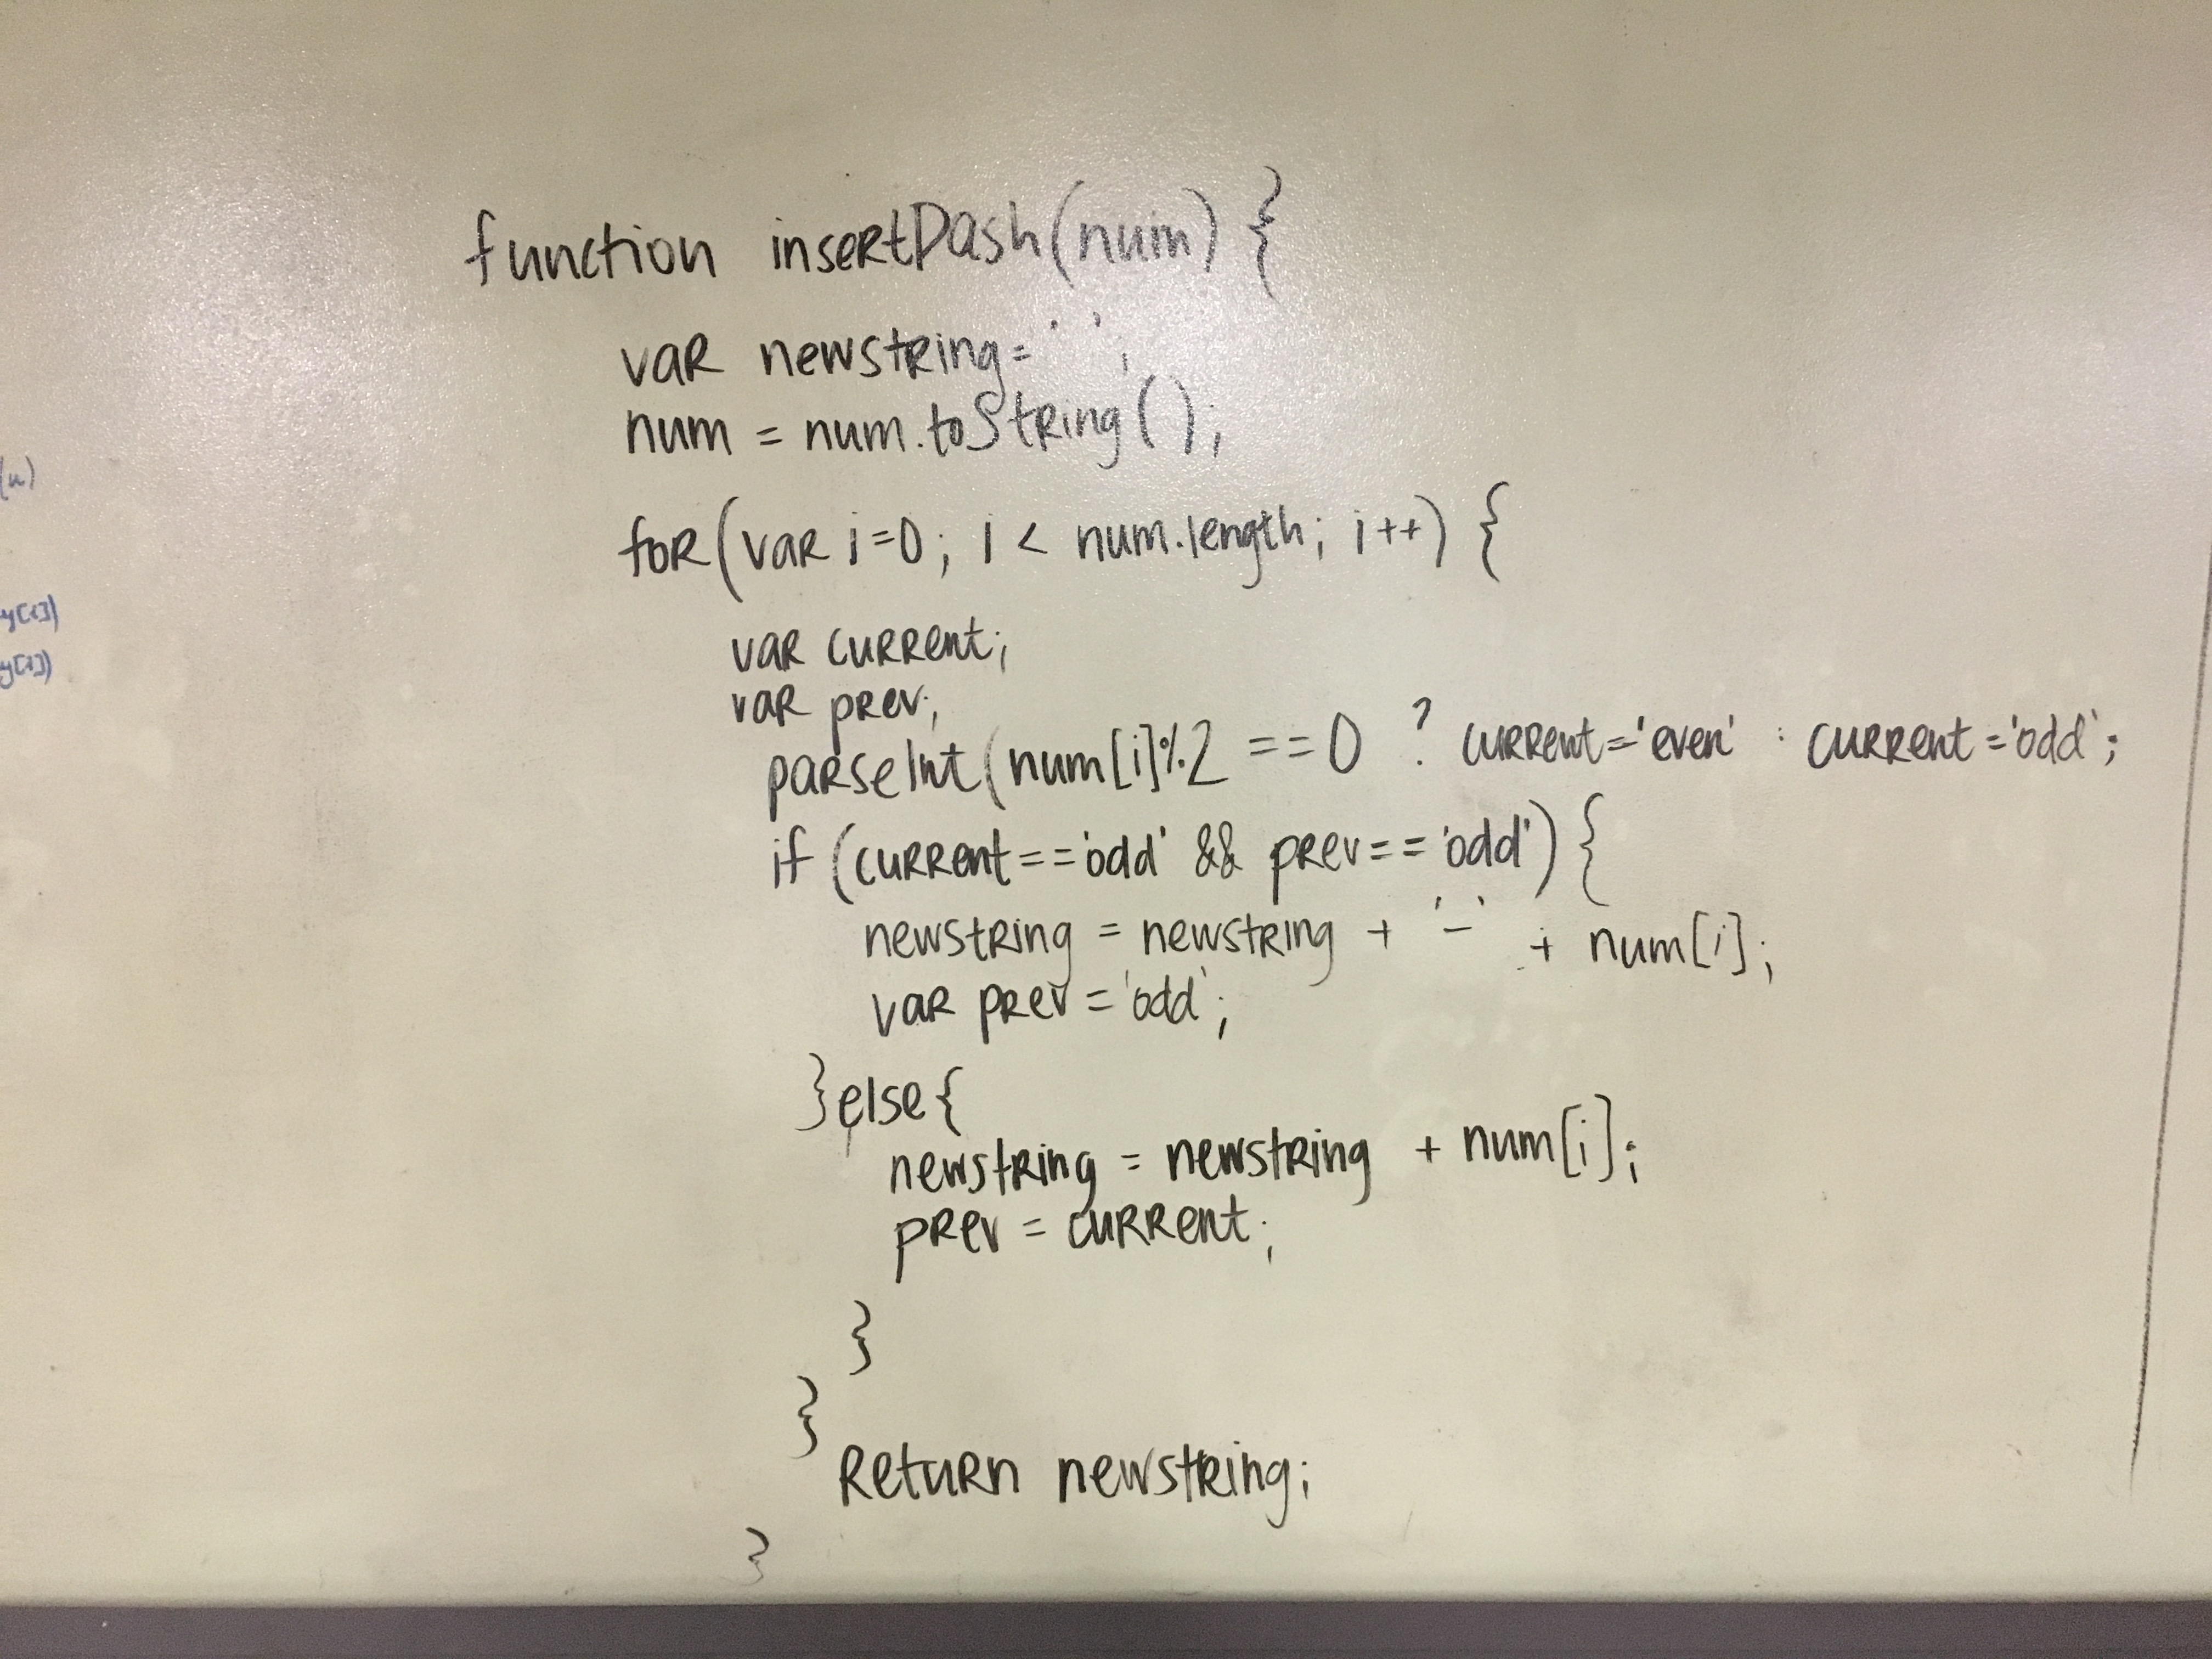 function insertDash(num) {
var newstring = ' ';
num = num.toString();
for(var i=0; i < num.length; i++) {
var current;
var prev;
parseInt(num[i]%2 ==0 ? current='even' : current='odd';
if (current=='odd' && prev=='odd') {
newstring = newstring + '-' + num[i];
var prev = 'odd';
}else{
newstring = newstring + num[i];
prev = current;
}
}
Return newstring;
}
(n)
y[i])
y[i])